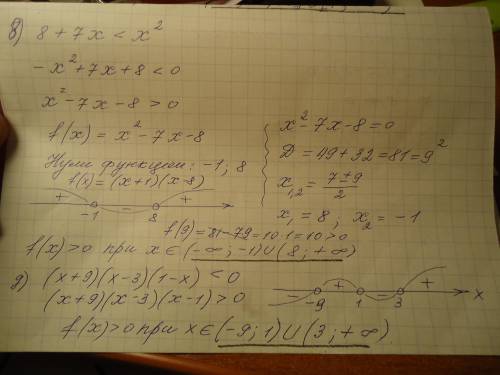 в) 8 + 7x < x²
-x² + 7x + 8 < 0
x² - 7x - 8 > 0
f(x) = x² - 7x - 8
Нули функции: -1; 8
f(x) = (x+1)(x-8)
+ - +
-1 8
x² - 7x - 8 = 0
D = 49 + 32 = 81 = 9²
x₁,₂ = (7 ± 9)/2
x₁ = 8; x₂ = -1
f(9) = 81 - 79 = 10·1 = 10 > 0
f(x) > 0 при x ∈ (-∞; -1) ∪ (8; +∞)
д) (x+9)(x-3)(1-x) < 0
(x+9)(x-3)(x-1) > 0
- + - +
-9 1 3 x
f(x) > 0 при x ∈ (-9; 1) ∪ (3; +∞)